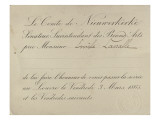 Le Comte de Nieuwerkerke
Sénateur Surintendant des Beaux Arts
prie Monsieur
de lui faire l'honneur de venir passer la soirée
au Louvre le Vendredi 3 Mars 1865
et les Vendredis suivants.